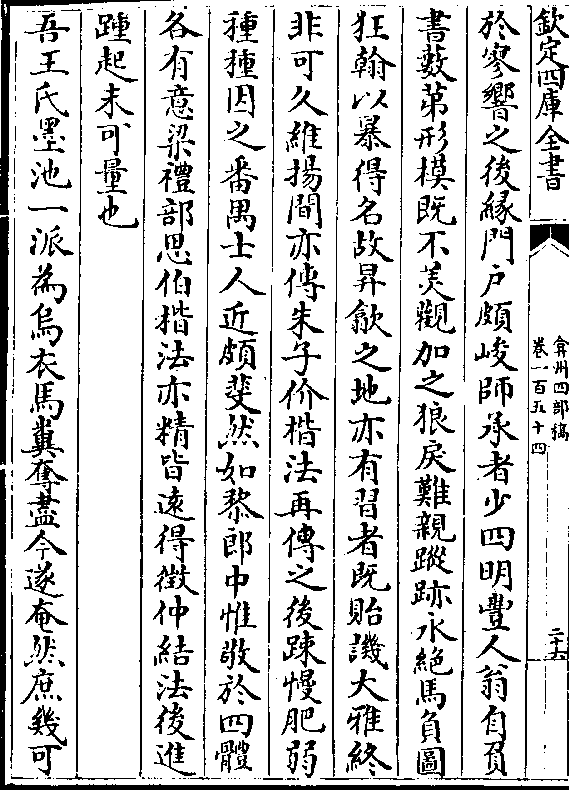 欽定四庫全書
弇州四部稿
卷一百五十四
二十六
於寥響之後緣門户頗峻師承者少四明豐人翁自負
書藪苐形模既不羙觀加之狼戾難親蹤跡永絶馬負圖
狂翰以暴得名故昇歙之地亦有習者既貽譏大雅終
非可久維揚間亦傳朱子价楷法再傳之後踈慢肥弱
種種因之番禺士人近頗斐然如黎郎中惟敬於四體
各有意梁禮部思伯楷法亦精皆遠得徴仲結法後進
踵起未可量也
吾王氏墨池一派為烏衣馬糞奪盡今遂奄然庶幾可